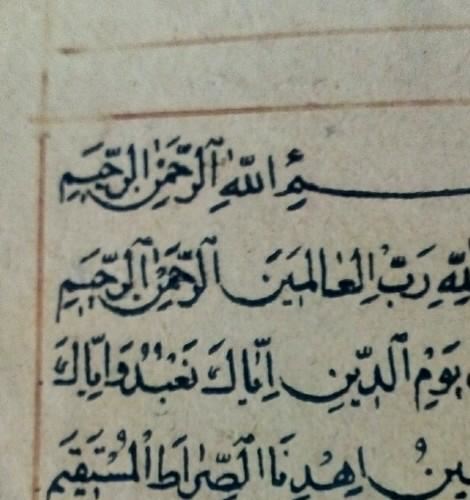 بِسْمِ اللّٰهِ الرَّحْمٰنِ الرَّحِيمِ
لِلّٰهِ رَبِّ الْعَالَمِينَ الرَّحْمٰنِ الرَّحِيمِ
يَوْمِ الدِّينِ اِيَّاكَ نَعْبُدُ وَاِيَّاكَ
اِهْدِنَا الصِّرَاطَ الْمُسْتَقِيمَ